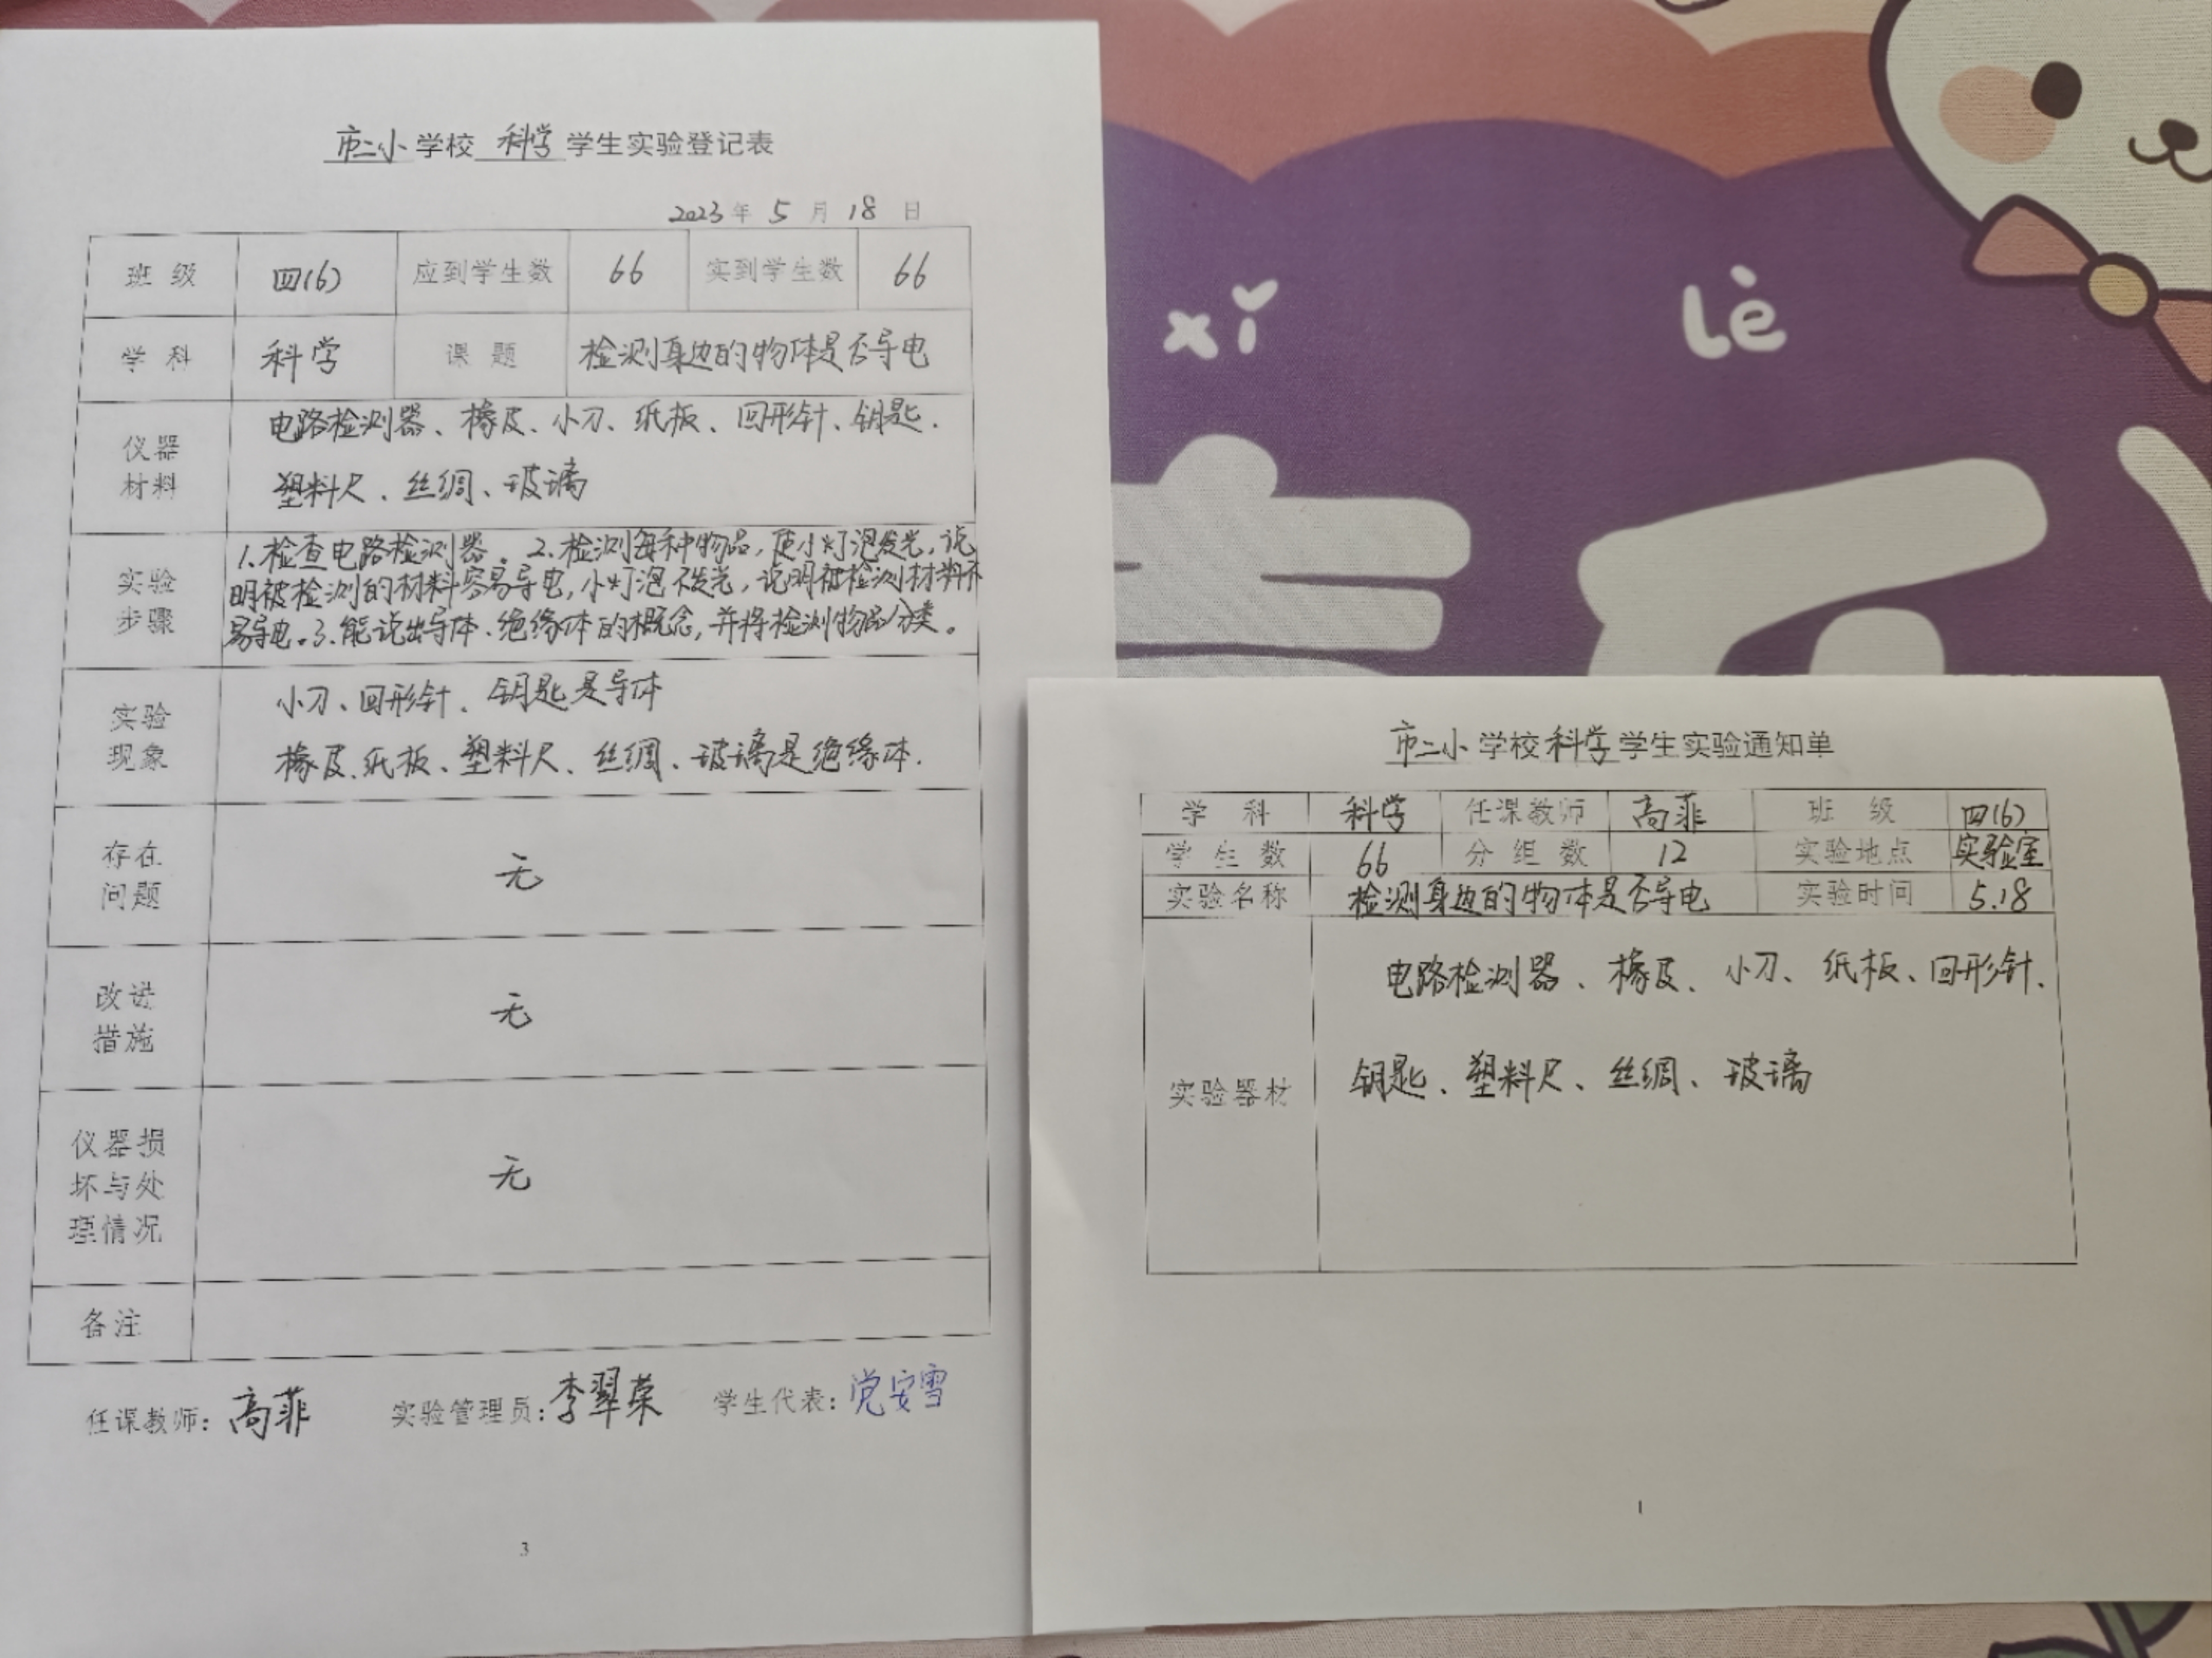 市二小学校 科学 学生实验登记表
2023年 5 月 18 日
班 级 四(6) 应到学生数 66 实到学生数 66
学 科 科学 课 题 检测身边的物体是否导电
仪器
材料
电路检测器、橡皮、小刀、纸板、回形针、钥匙.
塑料尺、丝绸、玻璃
实验
步骤
1.检查电路检测器。2.检测每种物品,使小灯泡发光,说
明被检测的材料容易导电,小灯泡不发光,说明被检测材料不
易导电。3.能说出导体、绝缘体的概念,并将检测物品分类。
实验
现象
小刀、回形针、钥匙是导体
橡皮、纸板、塑料尺、丝绸、玻璃是绝缘体.
存在
问题
无
改进
措施
无
仪器损
坏与处
理情况
无
备注
任课教师:高菲 实验管理员:李翠荣 学生代表:党安雪
3
xǐ lè
市二小学校科学学生实验通知单
学 科 科学 任课教师 高菲 班 级 四(6)
学 生 数 66 分 组 数 12 实验地点 实验室
实验名称 检测身边的物体是否导电 实验时间 5.18
实验器材
电路检测器、橡皮、小刀、纸板、回形针、
钥匙、塑料尺、丝绸、玻璃
1